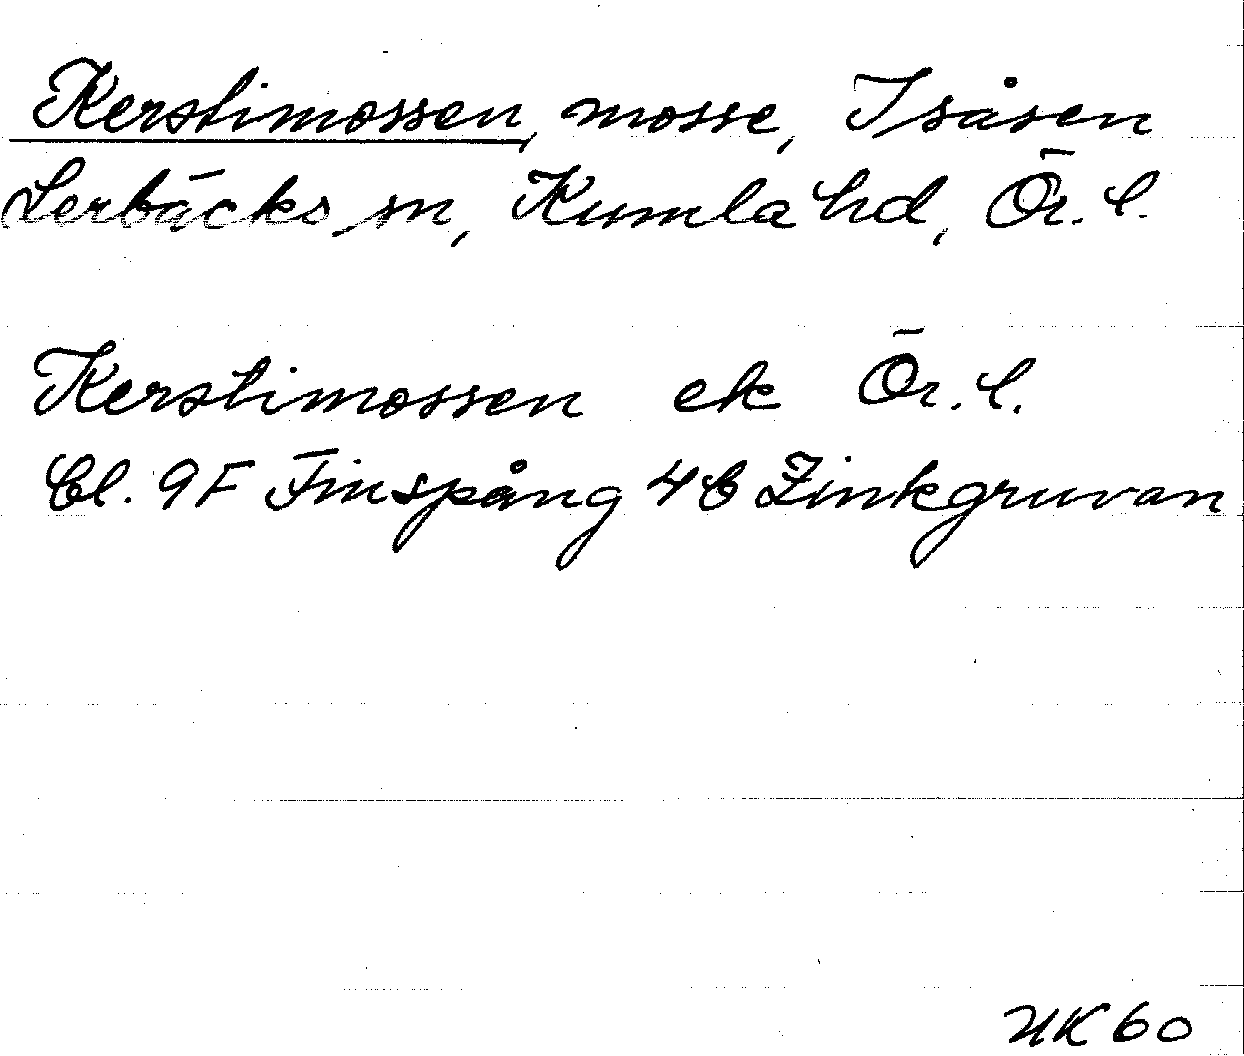 Kerstimossen, mosse, Isåsen
Lerbäcks sn, Kumla hd, Ör. l.
Kerstimossen ek Ör. l.
Bl. 9F Finspång 4C Zinkgruvan
HK 60